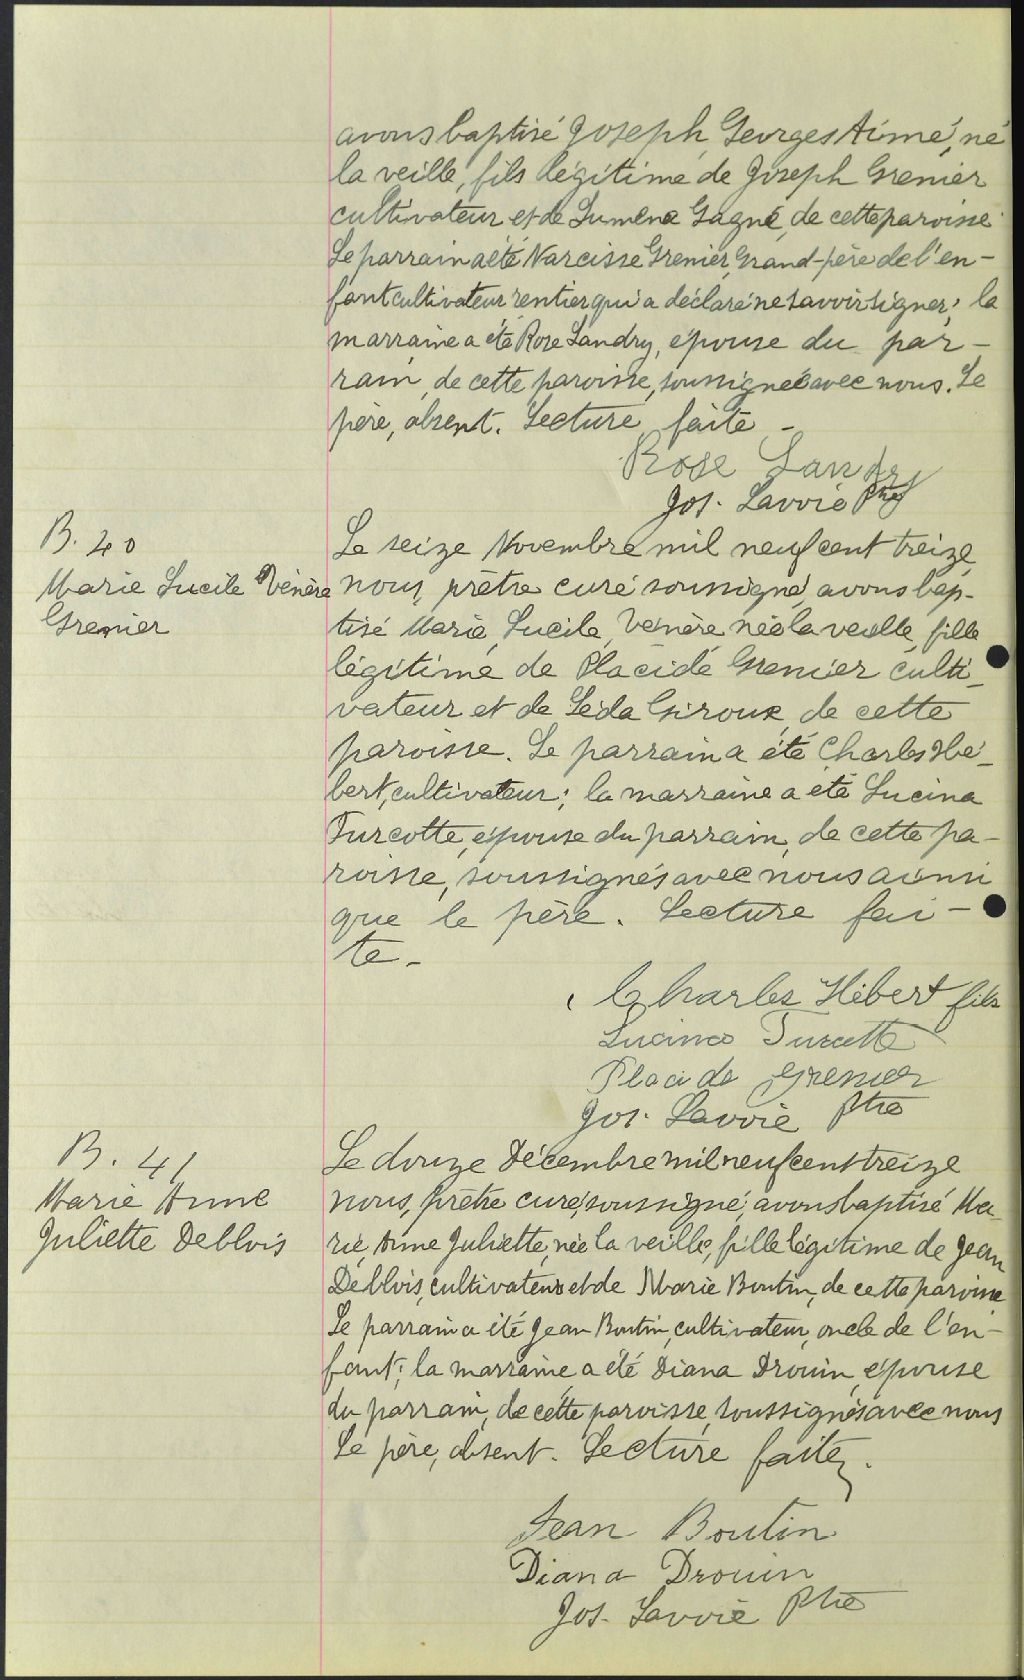 avons baptisé Joseph, Georges Aimé, né
la veille, fils légitime de Joseph Grenier
cultivateur et de Lumena Gagné, de cette paroisse
Le parrain a été Narcisse Grenier, Grand-père de l'en-
fant cultivateur rentier qui a déclaré ne savoir signer; la
marraine a été Rose Landry, épouse du par-
rain, de cette paroisse, soussignée avec nous. Le
père, absent. Lecture faite -
Rose Landry
Jos. Lavoie Ptre
B. 40
Marie Lucile Vénère
Grenier
Le seize Novembre mil neuf cent treize,
nous, prêtre curé soussigné, avons bap-
tisé Marie, Lucile, Vénère née la veille, fille
légitime de Placide Grenier culti-
vateur et de Léda Giroux, de cette
paroisse. Le parrain a été Charles Hé-
bert, cultivateur; la marraine a été Lucina
Turcotte, épouse du parrain, de cette pa-
roisse, soussignés avec nous ainsi
que le père. Lecture fai-
te -
Charles Hébert fils
Lucina Turcotte
Placide Grenier
Jos. Lavoie Ptre
B. 41
Marie Anne
Juliette Deblois
Le douze Décembre mil neuf cent treize
nous, prêtre curé, soussigné, avons baptisé Ma-
rie, Anne Juliette, née la veille, fille légitime de Jean
Deblois, cultivateur et de Marie Boutin, de cette paroisse
Le parrain a été Jean Boutin, cultivateur, oncle de l'en-
fant; la marraine a été Diana Drouin, épouse
du parrain, de cette paroisse, soussignés avec nous
Le père, absent. Lecture faite.
Jean Boutin
Diana Drouin
Jos. Lavoie Ptre